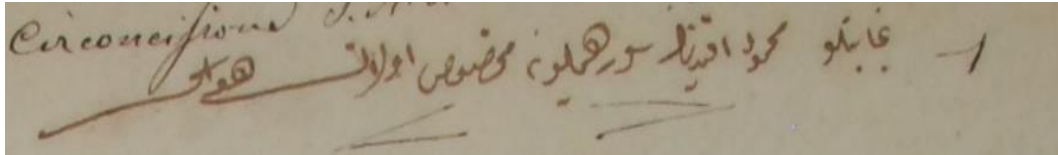 Circoncisione
١ نجابتلو محمود افندینك سور همایونه مخصوص اولان هوای